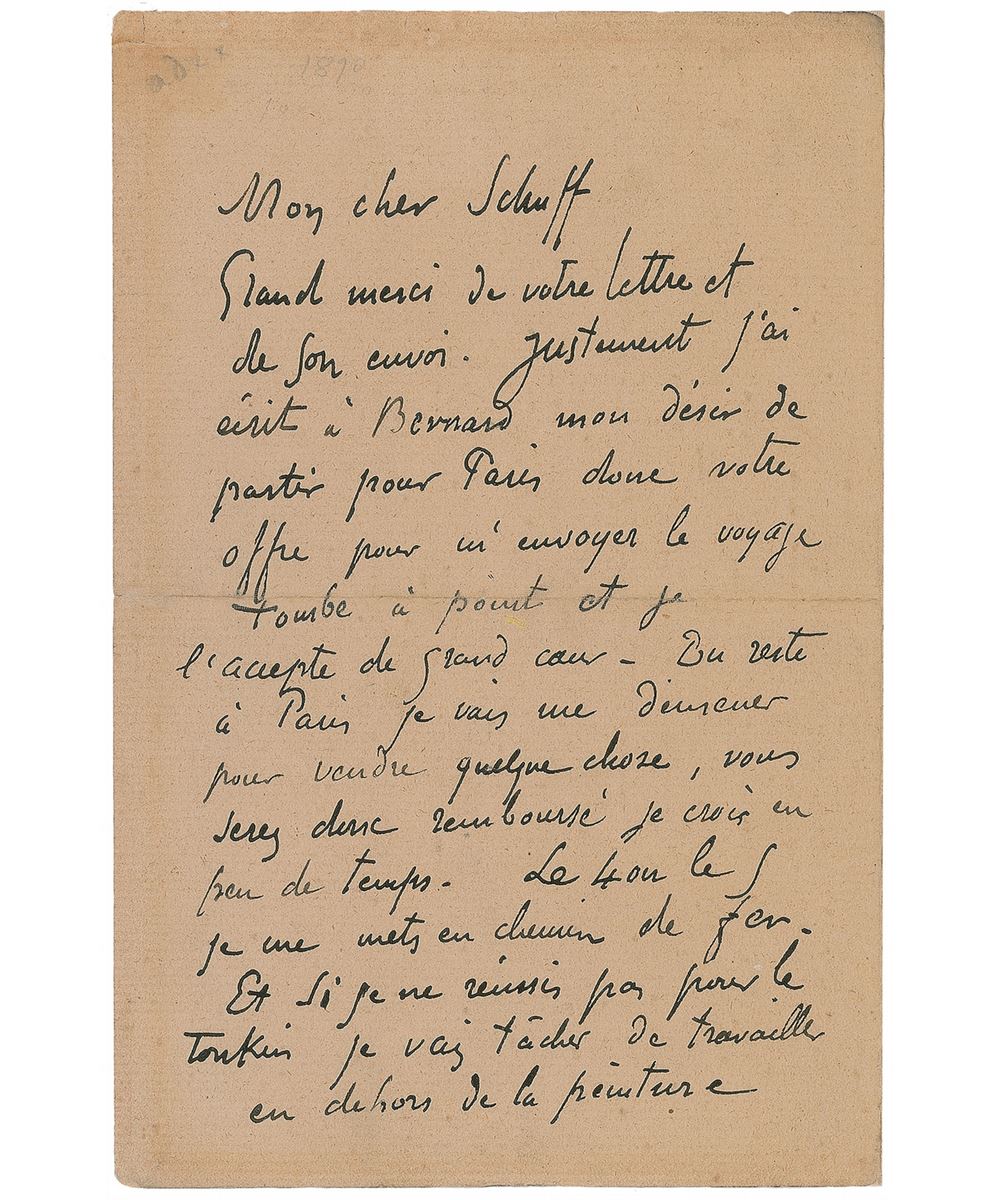 1890
Mon cher Schuff
Grand merci de votre lettre et
de son envoi. Justement j'ai
écrit à Bernard mon désir de
partir pour Paris donc votre
offre pour m'envoyer le voyage
tombe à point et je
l'accepte de grand cœur - Du reste
à Paris je vais me démener
pour vendre quelque chose, vous
serez donc remboursé je crois en
peu de temps. Le 4 ou le 5
je me mets en chemin de fer.
Et si je ne réussis pas pour le
Tonkin je vais tâcher de travailler
en dehors de la peinture